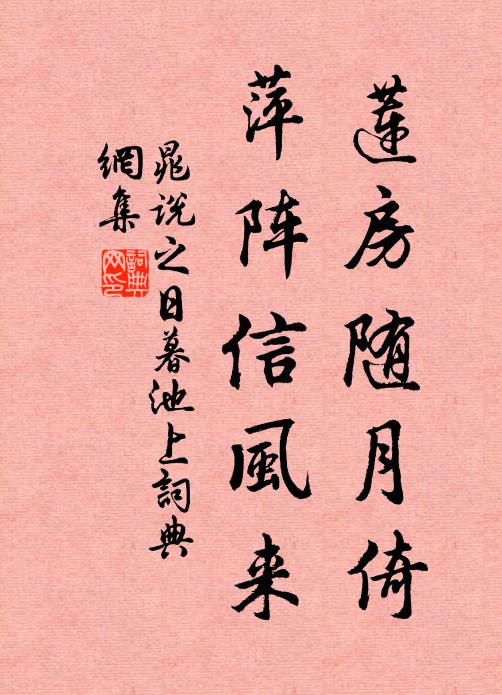 蓮房随月倚
萍阵信風来
晁说之日暮池上詞典
網集
詞典
网印